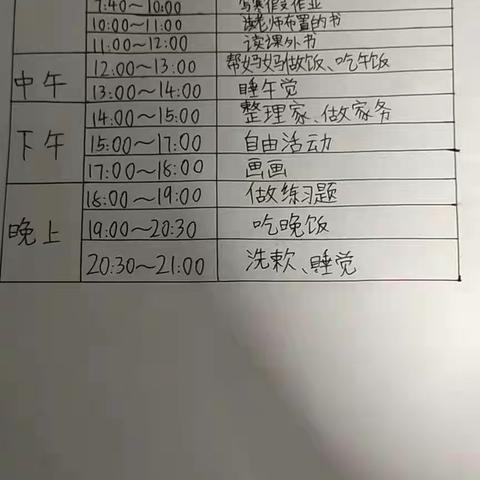 7:40～10:00 写寒假作业
10:00～11:00 读老师布置的书
11:00～12:00 读课外书
中午 12:00～13:00 帮妈妈做饭、吃午饭
13:00～14:00 睡午觉
下午 14:00～15:00 整理家、做家务
15:00～17:00 自由活动
17:00～18:00 画画
晚上 18:00～19:00 做练习题
19:00～20:30 吃晚饭
20:30～21:00 洗漱、睡觉